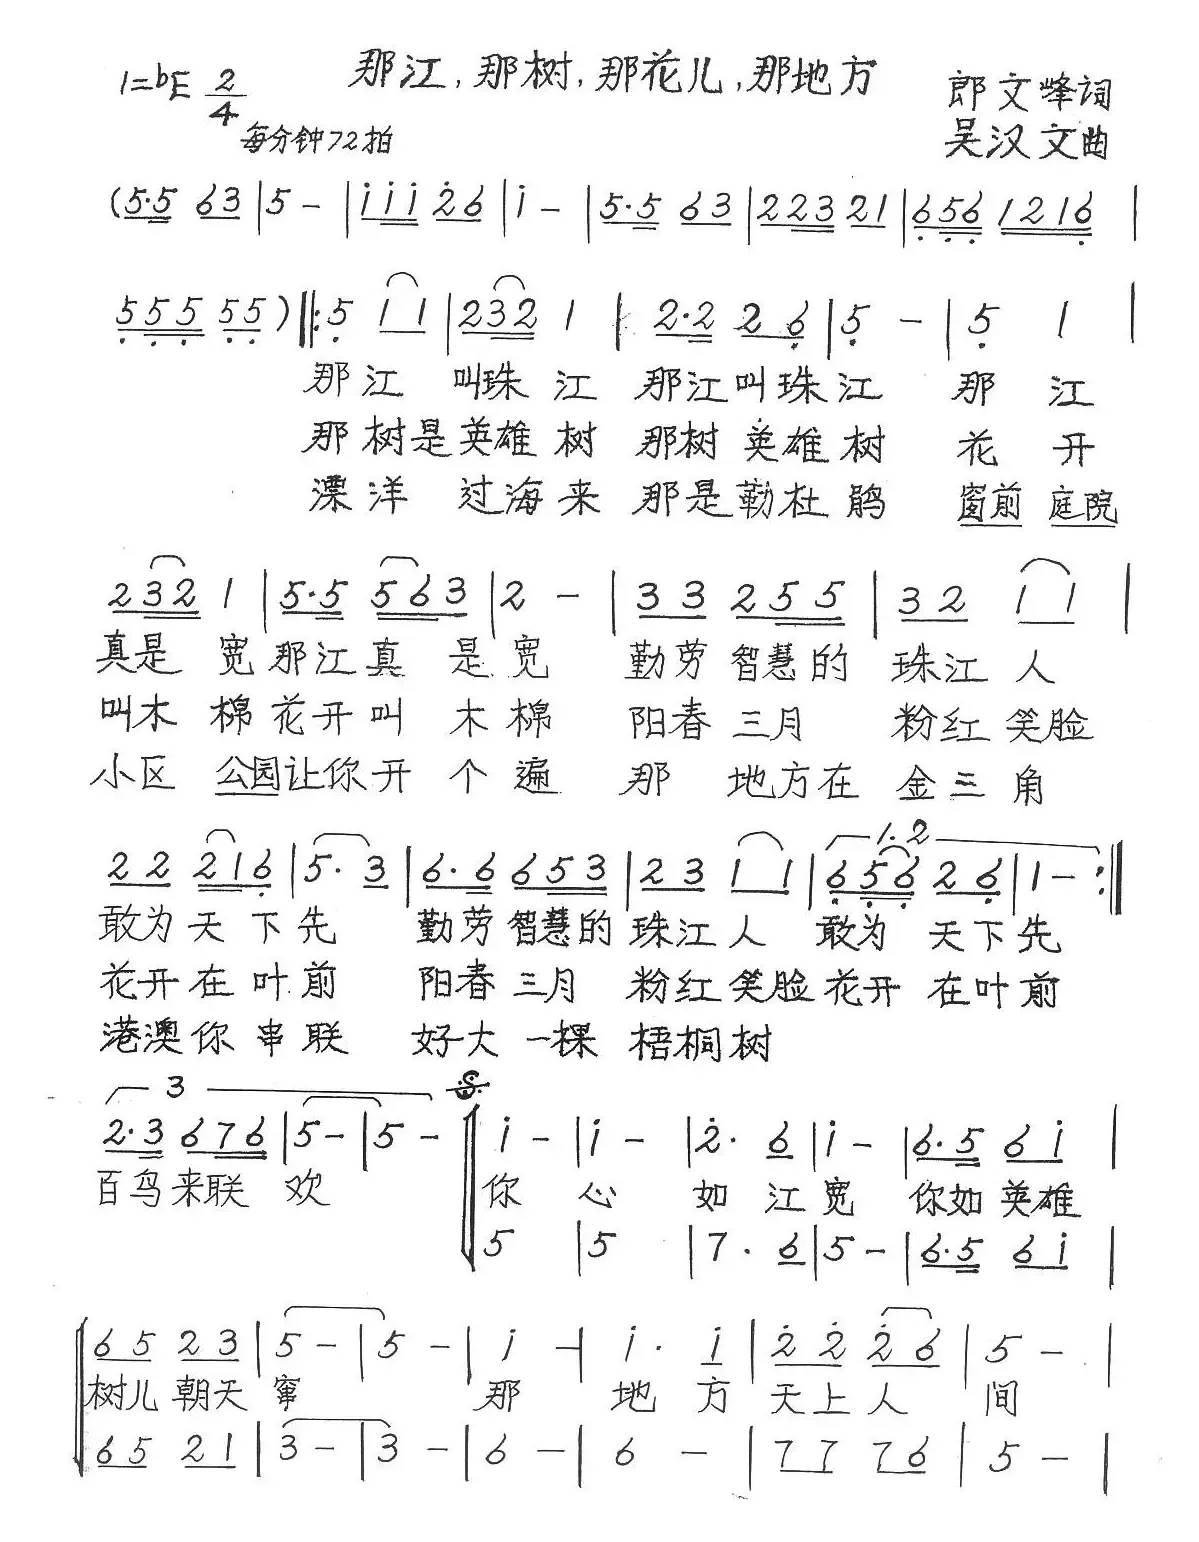 那江,那树,那花儿,那地方
1=bE 2/4
郎文峰词
每分钟72拍
吴汉文曲
(5·5 63|5 -|i i i 2 6|i -|5·5 63|223 21|656 1216|
555 55)‖:5 11|232 1|2·2 2 6|5 -|5 1|
那江 叫珠江 那江叫珠江 那 江
那树是英雄树 那树英雄树 花 开
漂洋 过海来 那是勒杜鹃 窗前 庭院
232 1|5·5 563|2 -|33 255|32 11|
真是 宽那江真 是宽 勤劳智慧的 珠江人
叫木棉花开叫 木棉 阳春三月 粉红笑脸
小区 公园让你开 个遍 那 地方在 金三角
1.2
22 216|5· 3|6·6 653|23 11|656 26|1 - :‖
敢为天下先 勤劳智慧的 珠江人 敢为 天下先
花开在叶前 阳春三月 粉红笑脸花开 在叶前
港澳你串联 好大一棵 梧桐树
3
2·3 676|5 -|5 -|i -|i -|2· 6|i -|6·5 6 i|
百鸟来联 欢 你 心 如 江宽 你如英雄
5|5|7· 6|5 -|6·5 6 i|
65 23|5 -|5 -|i -|i· i|2 2 2 6|5 -|
树儿朝天 窜 那 地 方 天上人 间
65 21|3 -|3 -|6 -|6 -|77 76|5 -|